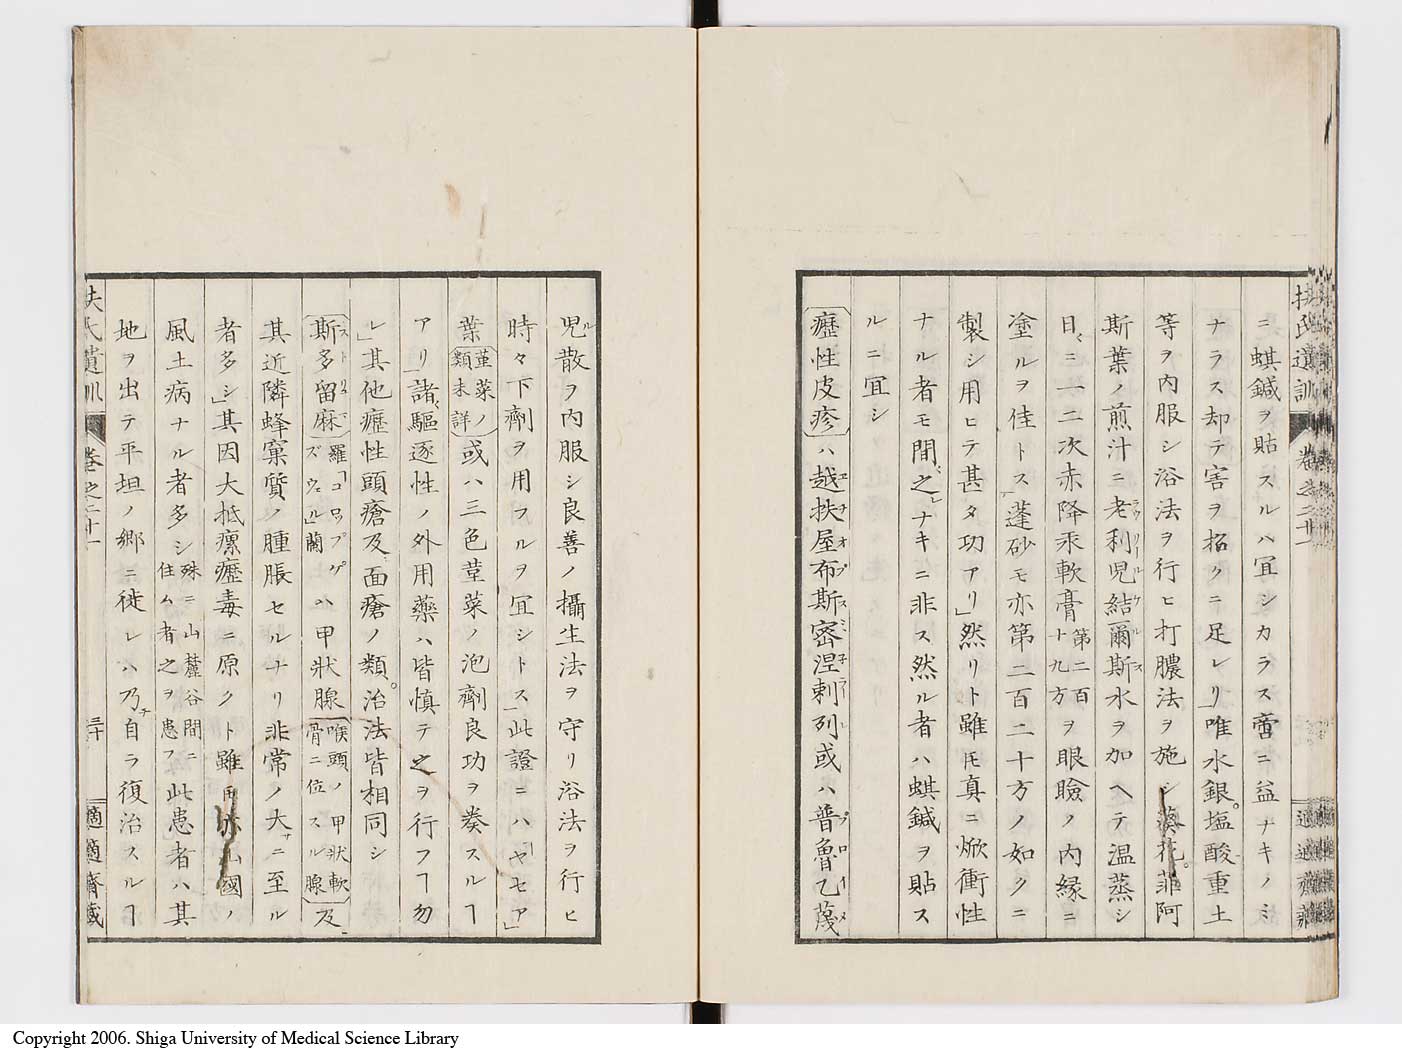 ニ蜞鍼ヲ貼スルハ冝シカラス啻ニ益ナキノミ
ナラス却テ害ヲ招クニ足レリ」唯水銀。塩酸重土
等ヲ内服シ浴法ヲ行ヒ打膿法ヲ施シ葵花。菲阿
斯葉ノ煎汁ニ老利児結爾斯水ヲ加ヘテ温蒸シ
日ニ一二次赤降汞軟膏第二百十九方ヲ眼瞼ノ内縁ニ
塗ルヲ佳トス」蓬砂モ亦第二百二十方ノ如クニ
製シ用ヒテ甚タ功アリ」然リト雖𪜈真ニ焮衝性
ナル者モ間之レナキニ非ス然ル者ハ蜞鍼ヲ貼ス
ルニ冝シ
癧性皮疹ハ越扶屋布斯密涅剌列或ハ普魯乙蔑
児散ヲ内服シ良善ノ攝生法ヲ守リ浴法ヲ行ヒ
時々下劑ヲ用フルヲ冝シトス」此證ニハ「ヤセア」
葉菫菜ノ類未詳或ハ三色菫菜ノ泡劑良功ヲ奏スルヿ
アリ」諸驅逐性ノ外用藥ハ皆慎テ之ヲ行フヿ勿
レ」其他癧性頭瘡及面瘡ノ類治法皆相同シ
斯多留麻羅「コロップゲズウェル」蘭ハ甲状腺喉頭ノ甲状軟骨ニ位スル腺及
其近隣蜂窠質ノ腫脹セルナリ非常ノ大サニ至ル
者多シ」其因大抵瘰癧毒ニ原クト雖𪜈亦山國ノ
風土病ナル者多シ殊ニ山麓谷間ニ住ム者之ヲ患フ此患者ハ其
地ヲ出テ平坦ノ郷ニ徙レハ乃チ自ラ復治スルヿ
扶氏遺訓 卷之二十一 三十 適適齋藏
Copyright 2006. Shiga University of Medical Science Library